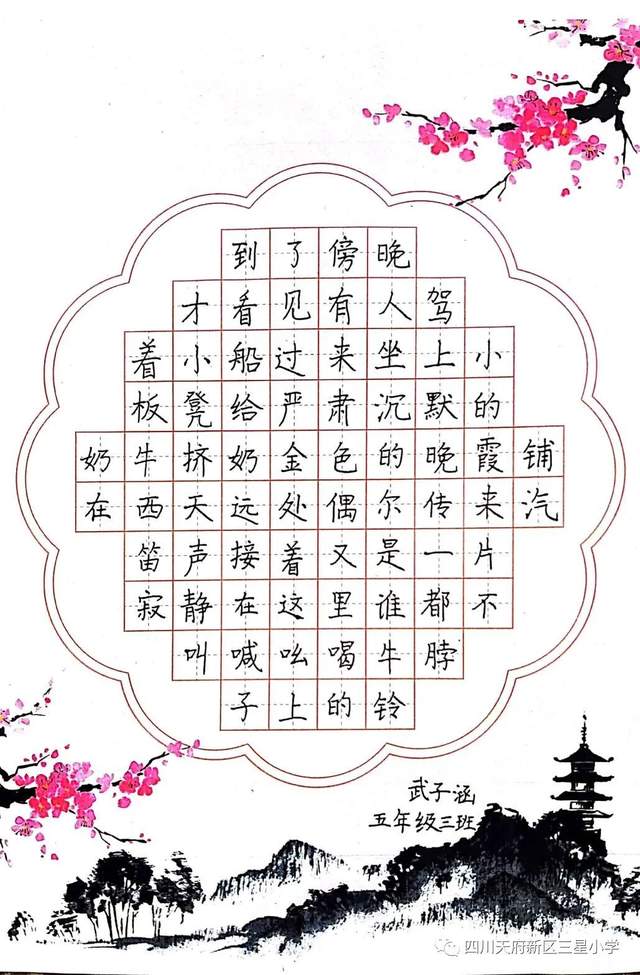 到了傍晚
才看见有人驾
着小船过来坐上小
板凳给严肃沉默的
奶牛挤奶金色的晚霞铺
在西天远处偶尔传来汽
笛声接着又是一片
寂静在这里谁都不
叫喊吆喝牛脖
子上的铃
武子涵
五年级三班
四川天府新区三星小学